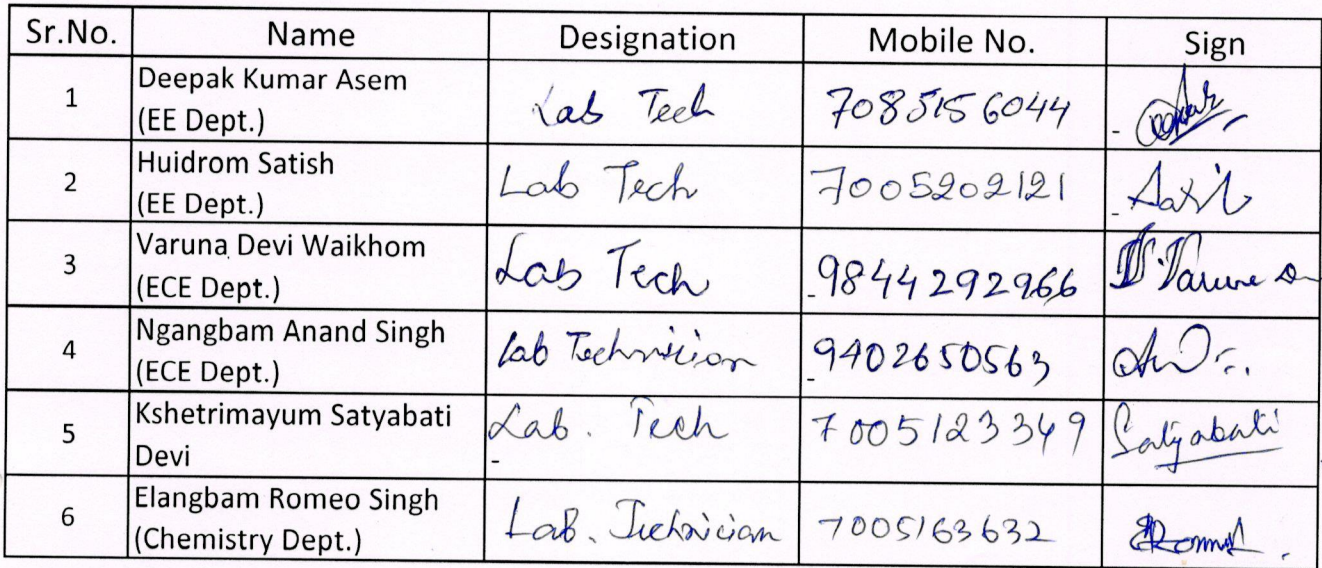 Sr.No. Name Designation Mobile No. Sign
1 Deepak Kumar Asem (EE Dept.) Lab Tech 7085156044
2 Huidrom Satish (EE Dept.) Lab Tech 7005202121
3 Varuna Devi Waikhom (ECE Dept.) Lab Tech 9844292966
4 Ngangbam Anand Singh (ECE Dept.) Lab Technician 9402650563
5 Kshetrimayum Satyabati Devi Lab. Tech 7005123349 Satyabati
6 Elangbam Romeo Singh (Chemistry Dept.) Lab. Technician 7005163632